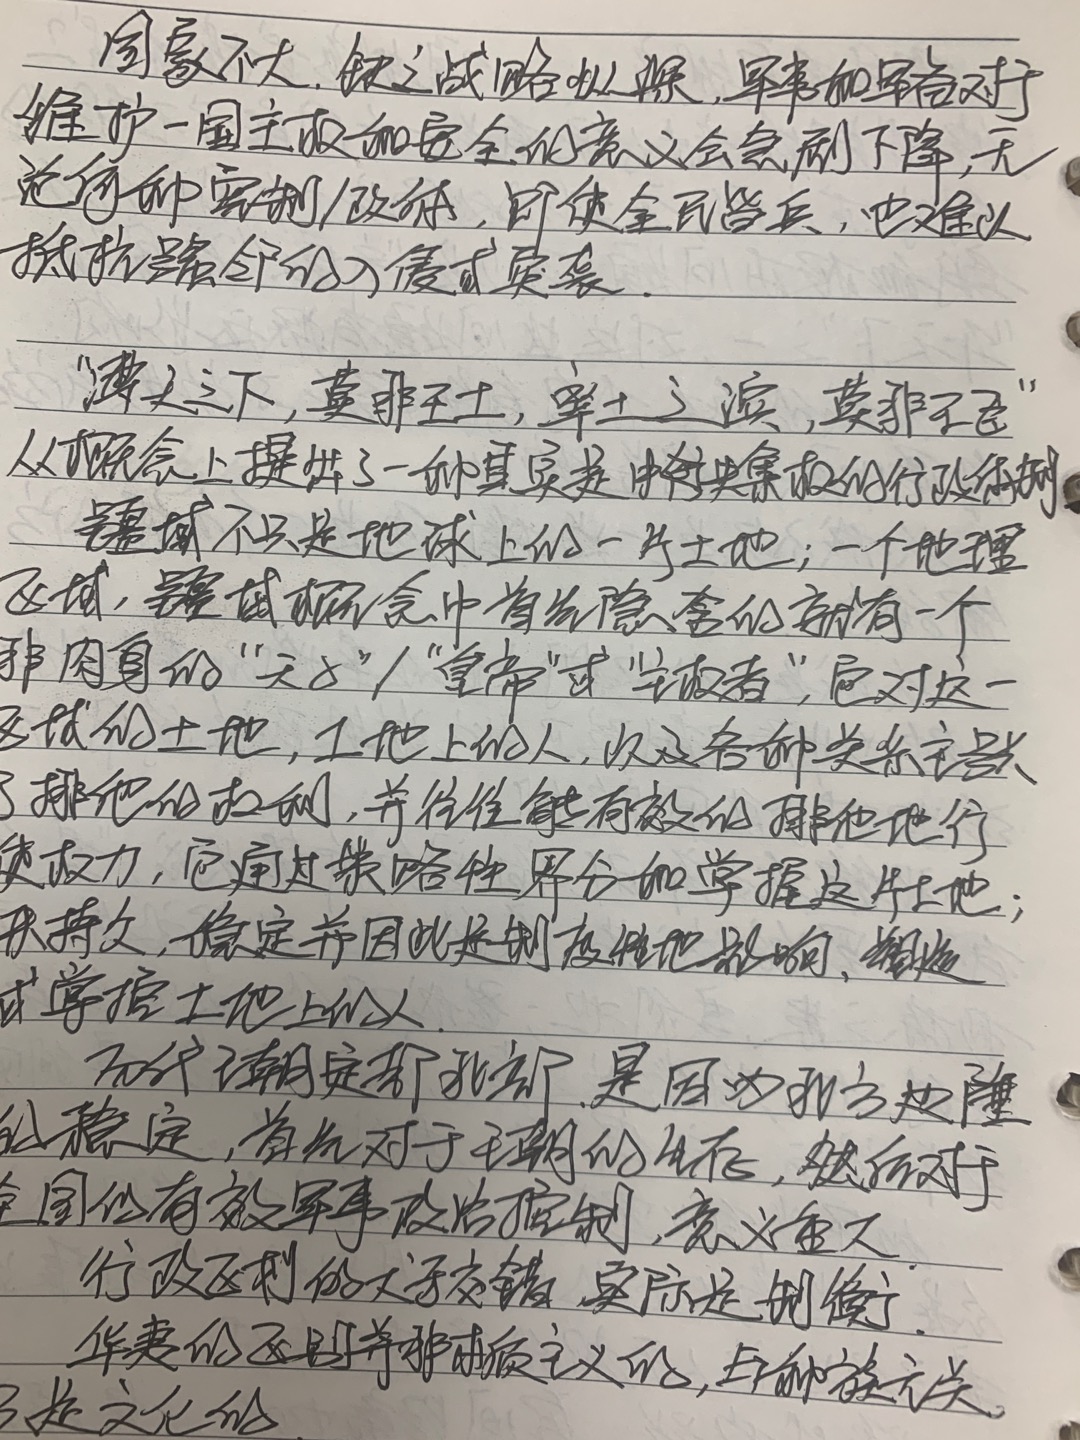 国家不大，缺乏战略纵深，军事和军备对于
维护一国主权和安全的意义会急剧下降，无
论何种宪制/政体，即使全民皆兵，也难以
抵抗强邻的入侵或突袭．
“溥天之下，莫非王土，率土之滨，莫非王臣”
从概念上提出了一种其实是中央集权的行政体制
疆域不只是地球上的一片土地；一个地理
区域，疆域概念中首先隐含的就有一个
非肉身的“天子”/“皇帝”或“主权者”，它对这一
区域的土地，土地上的人，以及各种关系主张
了排他的权利，并往往能有效的排他地行
使权力，它通过策略性界分和掌握这片土地；
持久，稳定并因此是制度性地影响、塑造
或掌控土地上的人．
历代王朝定都北部，是因为北方边陲
的稳定，首先对于王朝的生存，然后对于
全国的有效军事政治控制，意义重大．
行政区划的犬牙交错，实际是制衡．
华夷的区别并非本质主义的，与种族无关，
而是文化的．